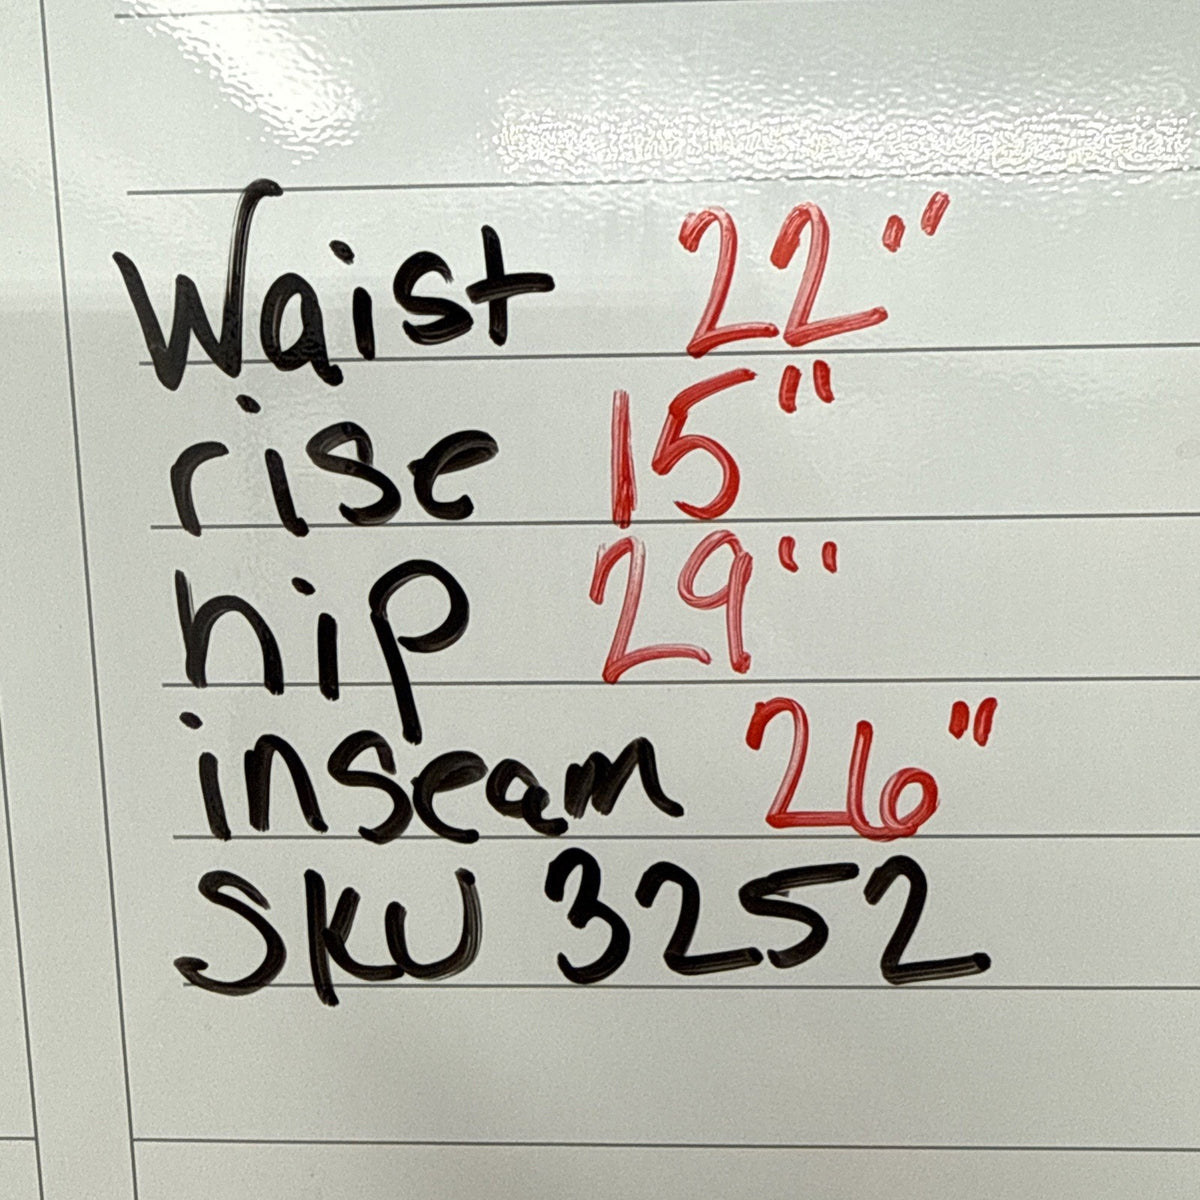 Waist 22"
rise 15"
hip 29"
inseam 26"
SKU 3252